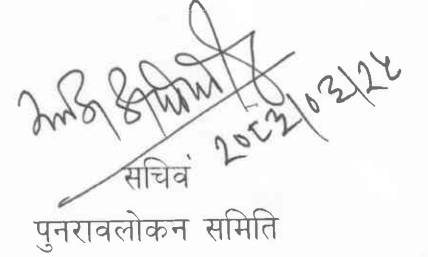 २०८३/०३/२५
सचिव
पुनरावलोकन समिति